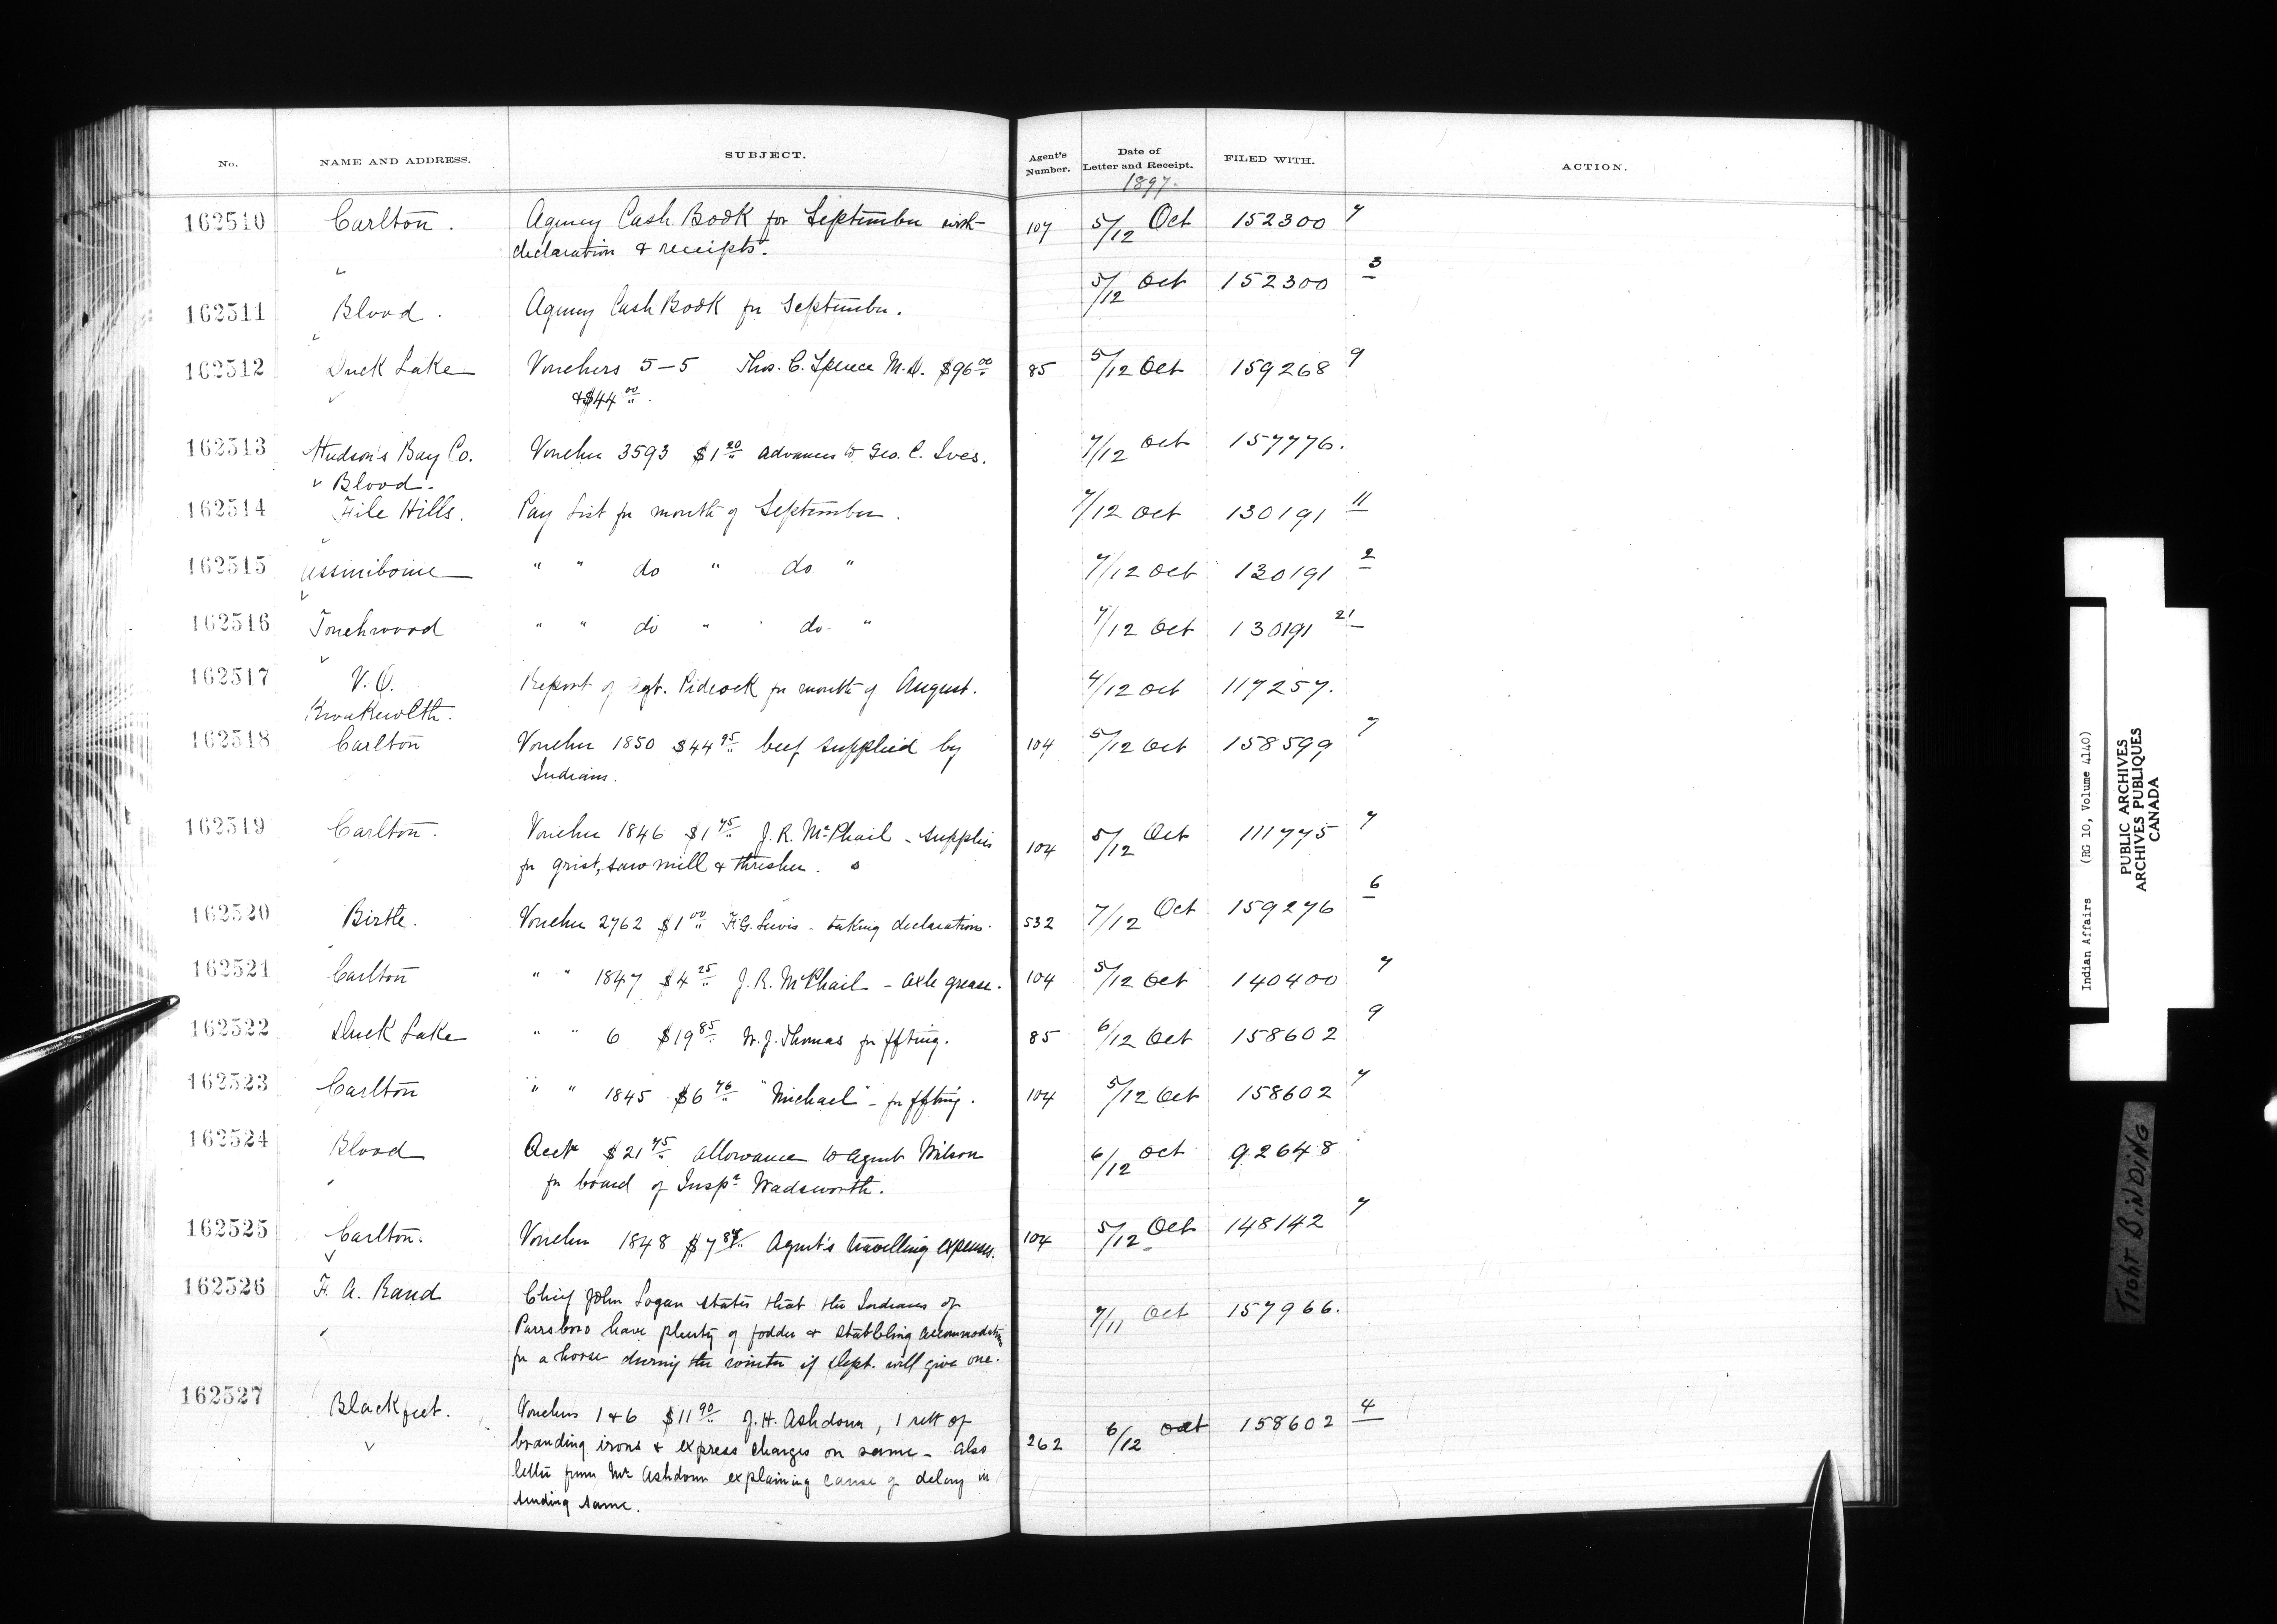 No. NAME AND ADDRESS. SUBJECT. Agent's Number. Date of Letter and Receipt. FILED WITH. ACTION.
1897.
162510 Carlton. Agency Cash Book for September with 107 5/12 Oct 152300 7
declaration & receipts.
162511 Blood. Agency Cash Book for September. 5/12 Oct 152300 3
162512 Duck Lake Vouchers 5-5 Thos. C. Spence M.D. $96 00 85 5/12 Oct 159268 9
& $44 00.
162513 Hudson's Bay Co. Voucher 3593 $1 20 advances to Geo. C. Ives. 7/12 Oct 157776.
Blood.
162514 File Hills. Pay List for month of September. 7/12 Oct 130191 11
162515 Assiniboine " " do " do " 7/12 Oct 130191 2
162516 Touchwood " " do " do " 7/12 Oct 130191 21
162517 V. O. Report of Agt. Pidcock for month of August. 4/12 Oct 117257.
Kwakewlth.
162518 Carlton Voucher 1850 $44 95 beef supplied by 104 5/12 Oct 158599 7
Indians.
162519 Carlton. Voucher 1846 $1 75 J. R. McPhail - supplies 104 5/12 Oct 111775 7
for grist, saw mill & thresher.
162520 Birtle. Voucher 2762 $1 00 F. G. Lewis - taking declarations. 532 7/12 Oct 159276 6
162521 Carlton " " 1847 $4 25 J. R. McPhail - axle grease. 104 5/12 Oct 140400 7
162522 Duck Lake " " 6 $19 85 W. J. Thomas for ffting. 85 6/12 Oct 158602 9
162523 Carlton " " 1845 $6 76 "Michael" - for ffting. 104 5/12 Oct 158602 7
162524 Blood Acct $21 75 allowance to Agent Wilson 6/12 Oct 92648
for board of Inspr. Wadsworth.
162525 Carlton. Voucher 1848 $7 Agent's travelling expenses. 104 5/12 Oct 148142 7
162526 F. A. Rand Chief John Logan states that the Indians of 7/11 Oct 157966.
Parrsboro have plenty of fodder & stabbling accommodation
for a horse during the winter if dept. will give one.
162527 Blackfeet. Vouchers 1 & 6 $11 90 J. H. Ashdown, 1 sett of 262 6/12 Oct 158602 4
branding irons & express charges on same - also
letter from Mr Ashdown explaining cause of delay in
sending same.
Indian Affairs (RG 10, Volume 4140)
PUBLIC ARCHIVES
ARCHIVES PUBLIQUES
CANADA
TIGHT BINDING